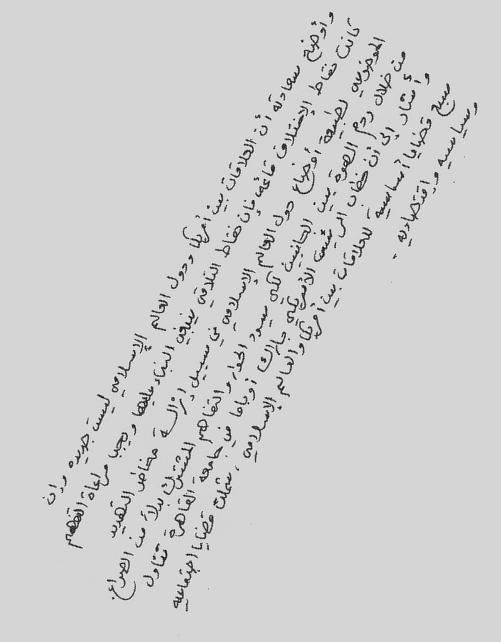 وأوضح سعادته أن العلاقات بين أمريكا ودول العالم الإسلامي ليست جديده وان
كانت نقاط الإختلاف قائمه فإن نقاط التلاقي ينبغي البناء عليها ويجب مراعاة الفهم
الموضوعي لطبيعة أوضاع دول العالم الإسلامي في سبيل إزالة مخاض التهديد
من خلال ردم الهوة بين الجانبين لكي يسود الحوار والتفاهم المشترك بدلاً من الصراع.
وأشار إلى أن خطاب الرئيس الأمريكي باراك أوباما في جامعة القاهرة تناول
سبع قضايا أساسيه للعلاقات بين أمريكا والعالم الإسلامي، شملت قضايا اجتماعيه
وسياسيه واقتصاديه.